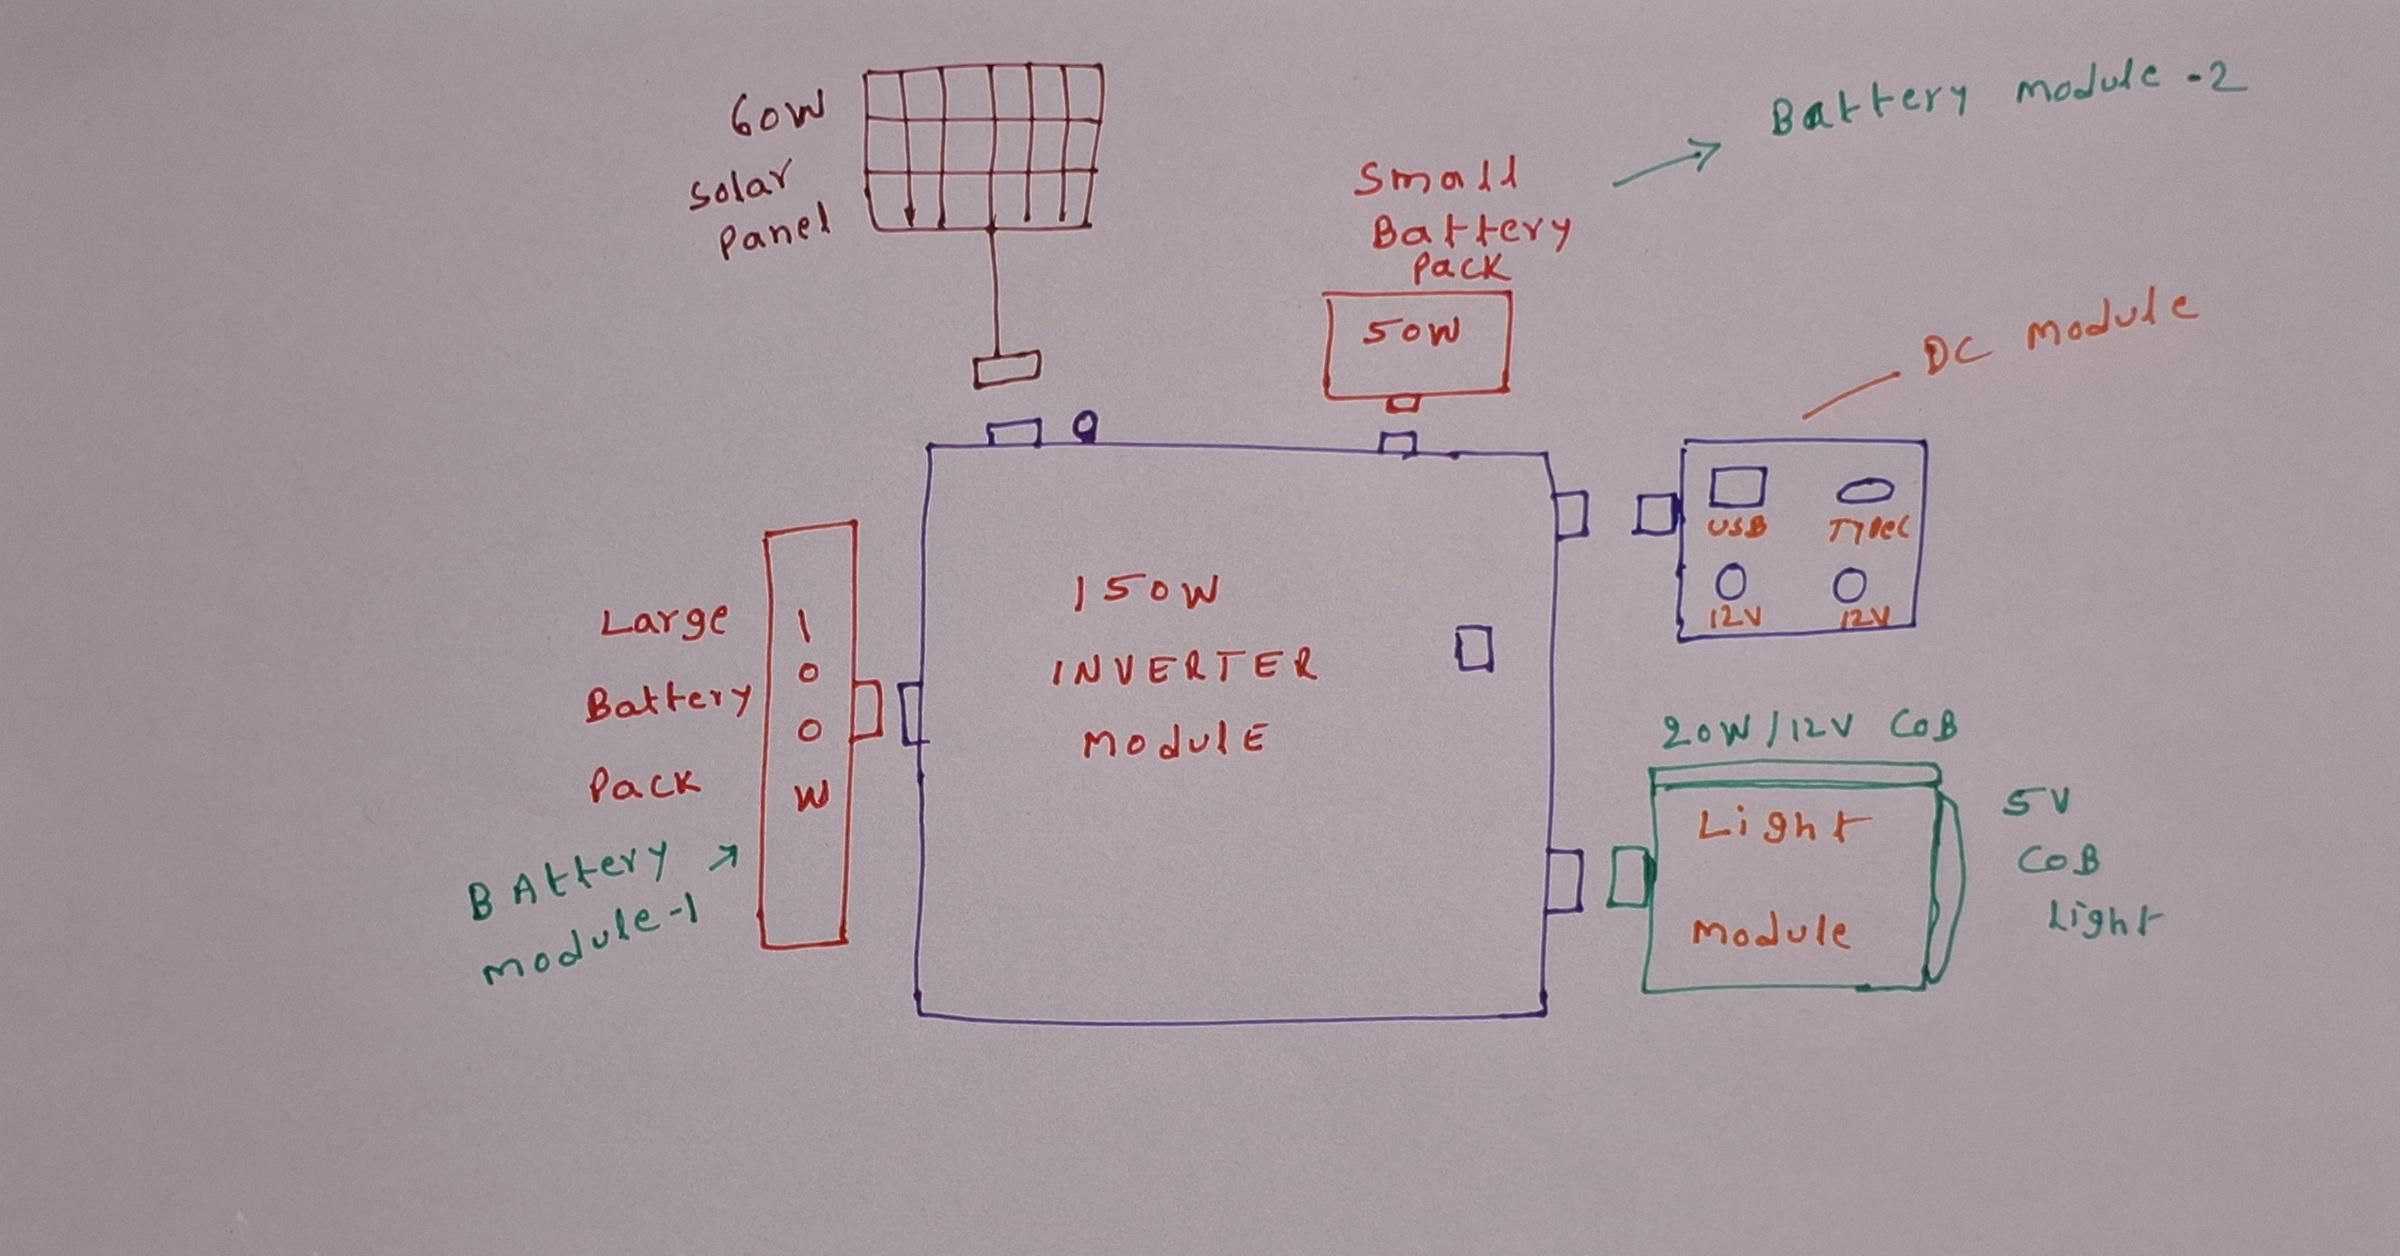 60W
Solar
Panel
Small
Battery
Pack
50W
Battery module-2
DC module
USB TYPEC
12V 12V
Large
Battery
Pack
1
0
0
W
BAttery
module-1
150W
INVERTER
ModulE
20W/12V CoB
Light
Module
5V
CoB
Light